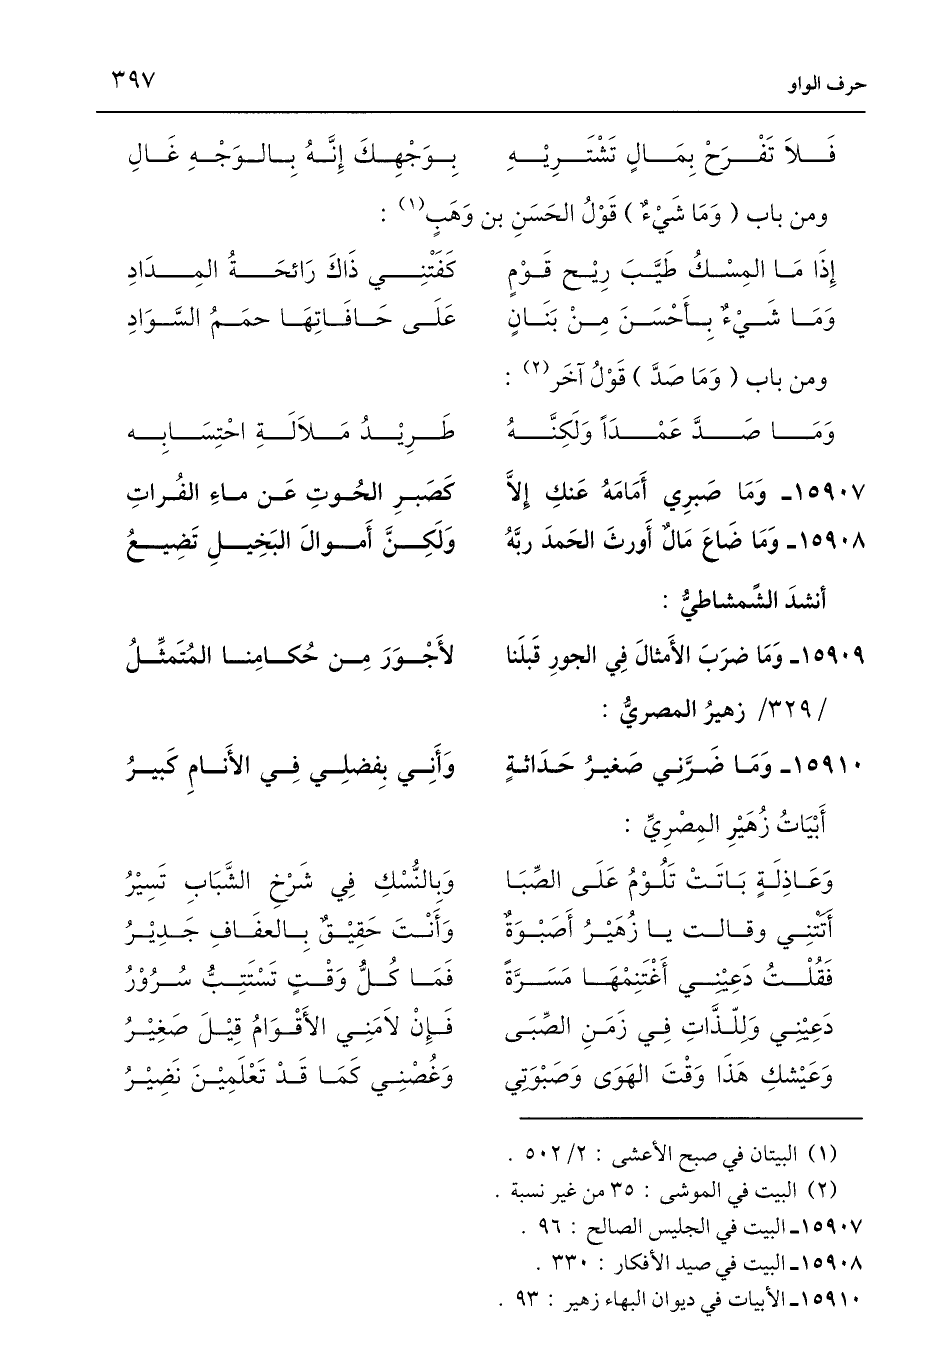 حرف الواو ٣٩٧
فَلاَ تَفْرَحْ بِمَالٍ تَشْتَرِيْهِ بِوَجْهِكَ إِنَّهُ بِالوَجْهِ غَالِ
ومن باب ( وَمَا شَيْءٌ ) قَوْلُ الحَسَنِ بن وَهَبٍ(١) :
إِذَا مَا المِسْكُ طَيَّبَ رِيْح قَوْمٍ كَفَتْنِي ذَاكَ رَائحَةُ المِدَادِ
وَمَا شَيْءٌ بِأَحْسَنَ مِنْ بَنَانٍ عَلَى حَافَاتِهَا حمَمُ السَّوَادِ
ومن باب ( وَمَا صَدَّ ) قَوْلُ آخَر(٢) :
وَمَا صَدَّ عَمْدَاً وَلَكِنَّهُ طَرِيْدُ مَلاَلَةِ احْتِسَابِه
١٥٩٠٧ـ وَمَا صَبرِي أُمَامَةُ عَنكِ إِلاَّ كَصَبرِ الحُوتِ عَن ماءِ الفُراتِ
١٥٩٠٨ـ وَمَا ضَاعَ مَالٌ أَورثَ الحَمدَ ربَّهُ وَلَكِنَّ أَموالَ البَخِيلِ تَضِيعُ
أنشدَ الشِّمشاطيُّ :
١٥٩٠٩ـ وَمَا ضرَبَ الأَمثالَ فِي الجورِ قَبلَنا لأَجْوَرَ مِن حُكامِنا المُتَمثِّلُ
/ ٣٢٩/ زهيرُ المصريُّ :
١٥٩١٠ـ وَمَا ضَرَّنِي صَغيرُ حَدَاثةٍ وَأَنِي بِفضلِي فِي الأَنامِ كَبيرُ
أَبْيَاتُ زُهَيْرِ المِصْرِيِّ :
وَعَاذِلَةٍ بَاتَتْ تَلُوْمُ عَلَى الصِّبَا وَبِالنُّسْكِ فِي شَرْخِ الشَّبَابِ تَسِيْرُ
أَتَتْنِي وقالت يا زُهَيْرُ أَصَبْوَةٌ وَأَنْتَ حَقِيْقٌ بِالعفَافِ جَدِيْرُ
فَقُلْتُ دَعِيْنِي أَغْتَنِمْهَا مَسَرَّةً فَمَا كُلُّ وَقْتٍ تَسْتَتِبُّ سُرُوْرُ
دَعِيْنِي وَلِلّذَّاتِ فِي زَمَنِ الصِّبَى فَإِنْ لاَمَنِي الأَقْوَامُ قِيْلَ صَغِيْرُ
وَعَيْشكِ هَذَا وَقْتَ الهَوَى وَصَبْوَتِي وَغُصْنِي كَمَا قَدْ تَعْلَمِيْنَ نَضِيْرُ
(١) البيتان في صبح الأعشى : ٢/ ٥٠٢ .
(٢) البيت في الموشى : ٣٥ من غير نسبة .
١٥٩٠٧ـ البيت في الجليس الصالح : ٩٦ .
١٥٩٠٨ـ البيت في صيد الأفكار : ٣٣٠ .
١٥٩١٠ـ الأبيات في ديوان البهاء زهير : ٩٣ .